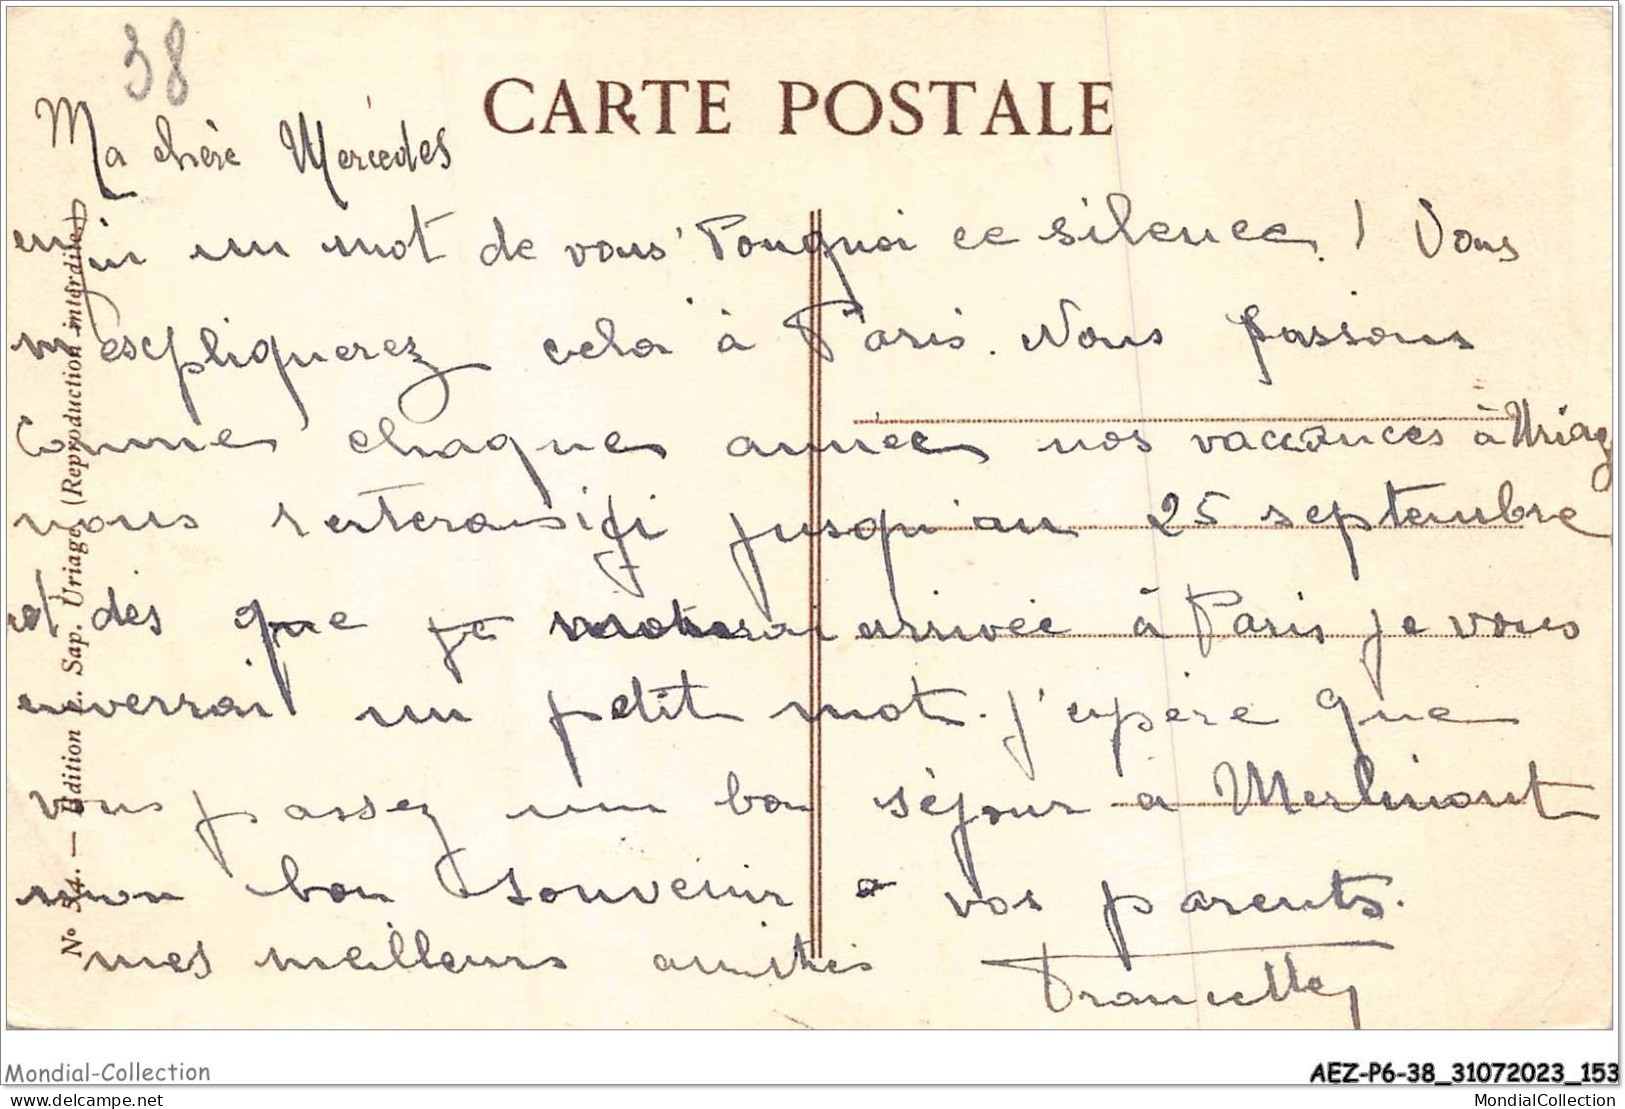 38
CARTE POSTALE
Ma chère Mercédes
enfin un mot de vous! Pourquoi ce silence! Vous
m'expliquerez cela à Paris. Nous passons
comme chaque année nos vacances à Uriage
nous resterons ici jusqu'au 25 septembre
et dès que je serai arrivée à Paris je vous
enverrai un petit mot. J'espère que
vous passez un bon séjour à Merlimont
mon bon souvenir à vos parents.
mes meilleurs amitiés Francette
N° 54. — Edition L. Sap. Uriage (Reproduction interdite)
Mondial-Collection
AEZ-P6-38_31072023_153
delcampe.net
MondialCollection